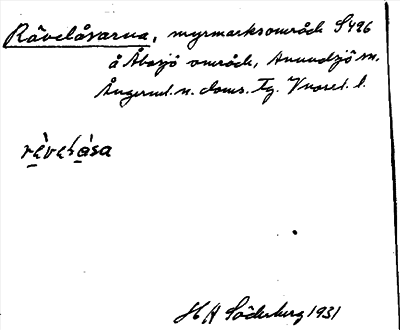 Rävelåsarna, myrmarksområde S 496
å Åbosjö område, Anundsjö sn.
Ångerml. n. doms. Tg. Vnorrl. l.
rä̀velåsa
H A Söderberg 1931